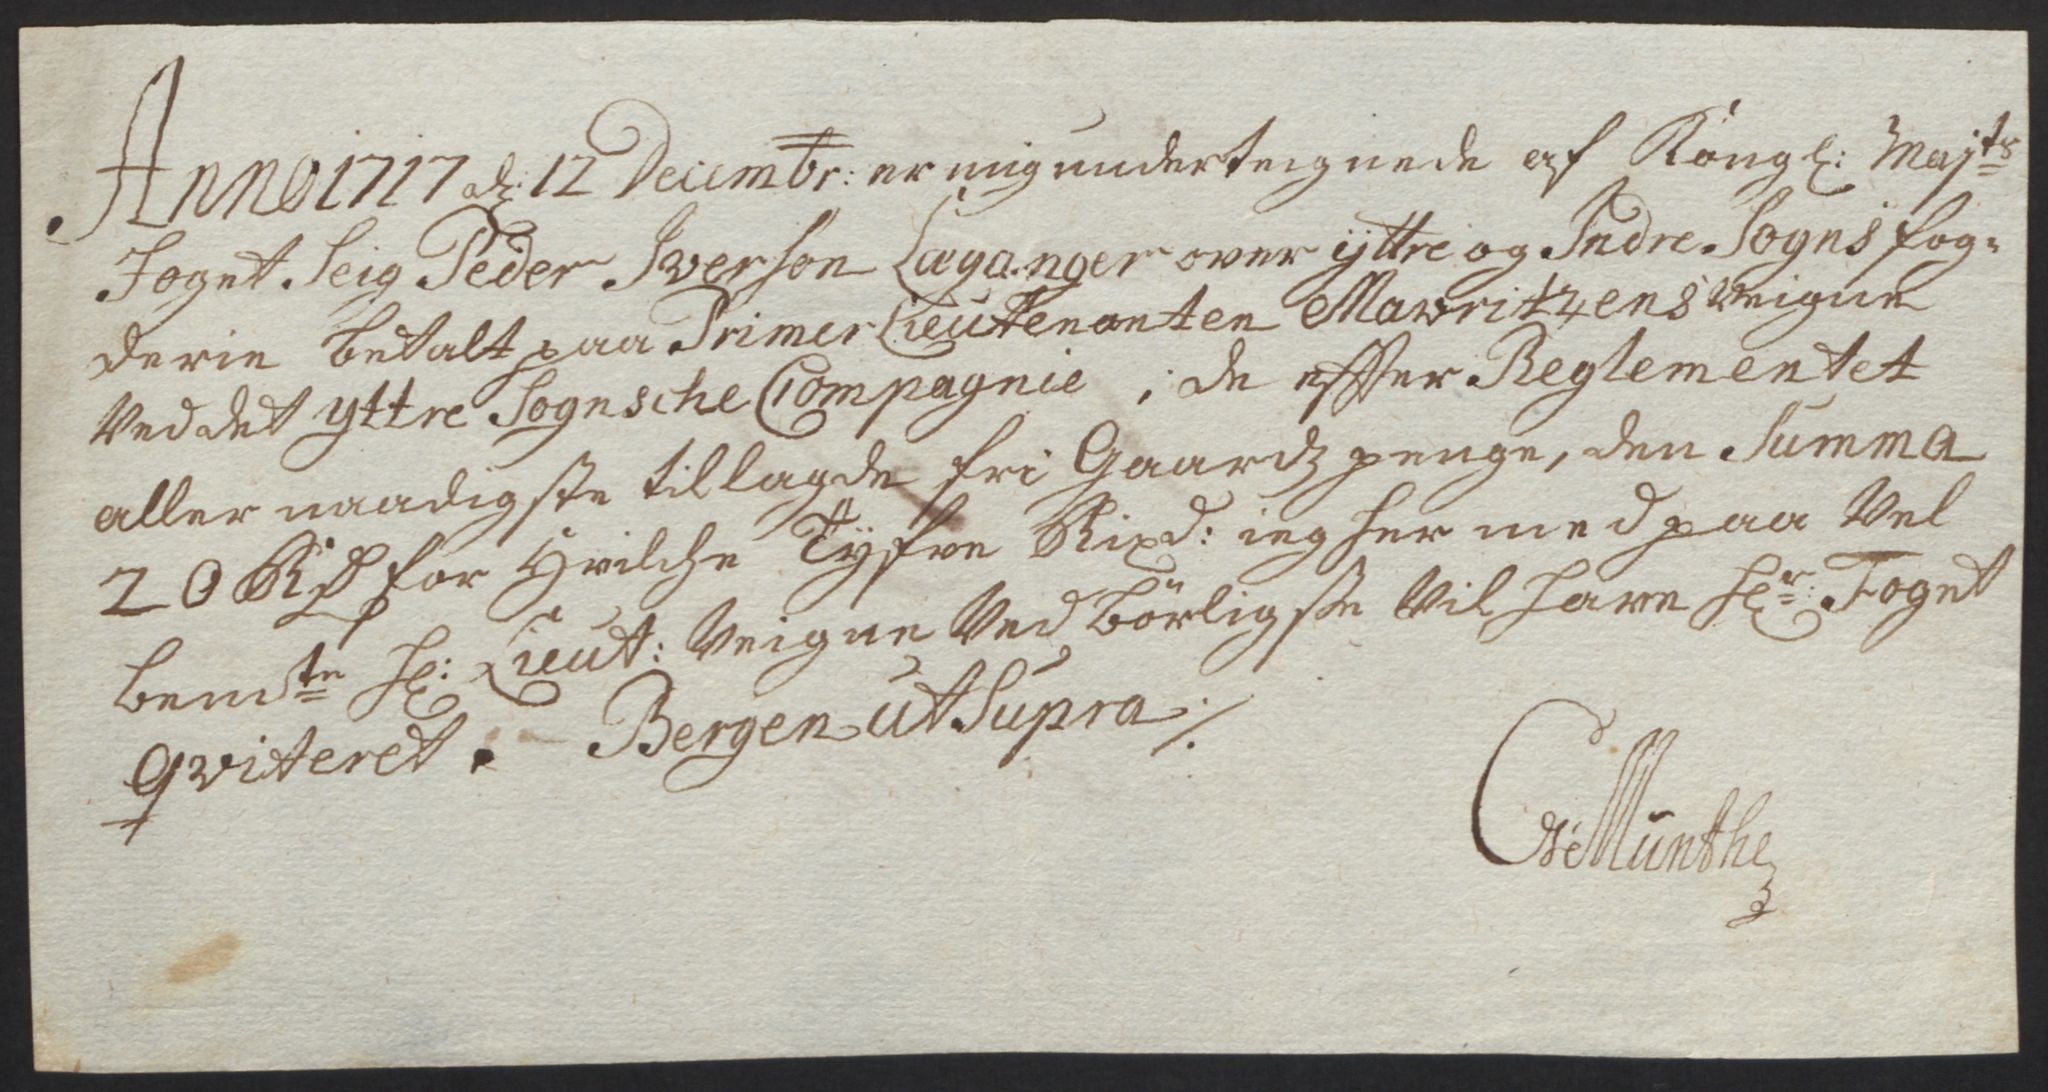 Anno 1717 d: 12 Decembr: er mig underteignede af Kongl: Mayts
Foget Seig Peder Iverson Læganger over yttre og Indre Sogns fog=
derie betalt paa Primer Lieutenanten Mawritzens Veigne
Ved det yttre Sognsche Compagnie, de effter Reglementet
aller naadigste tillagde fri Gaardz penge, den Summa
20 Rdr for Hvilche Tyfve Rixd: ieg her med paa Vel
bemte Hr: Lieut: Veigne Ved Börligste Vil have Hr: Foget
qviteret. Bergen ut Supra ./.
Munthe